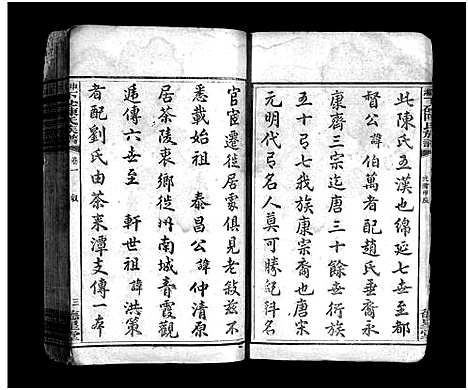 此陳氏立漢也綿延七世至都
督公諱伯萬者配趙氏垂裔永
康齊三宗迄唐三十餘世衍族
五十弓七我族康宗裔也唐宋
元明代弓名人莫可勝紀科名
官宦遷徙居蒙俱見老敘茲不
悉載始祖 泰昌公諱仲清原
居茶陵衷鄉徙州南城青霞觀
遞傳六世至 軒世祖諱洪策
者配劉氏由茶來潭支傳一本
卷一
三